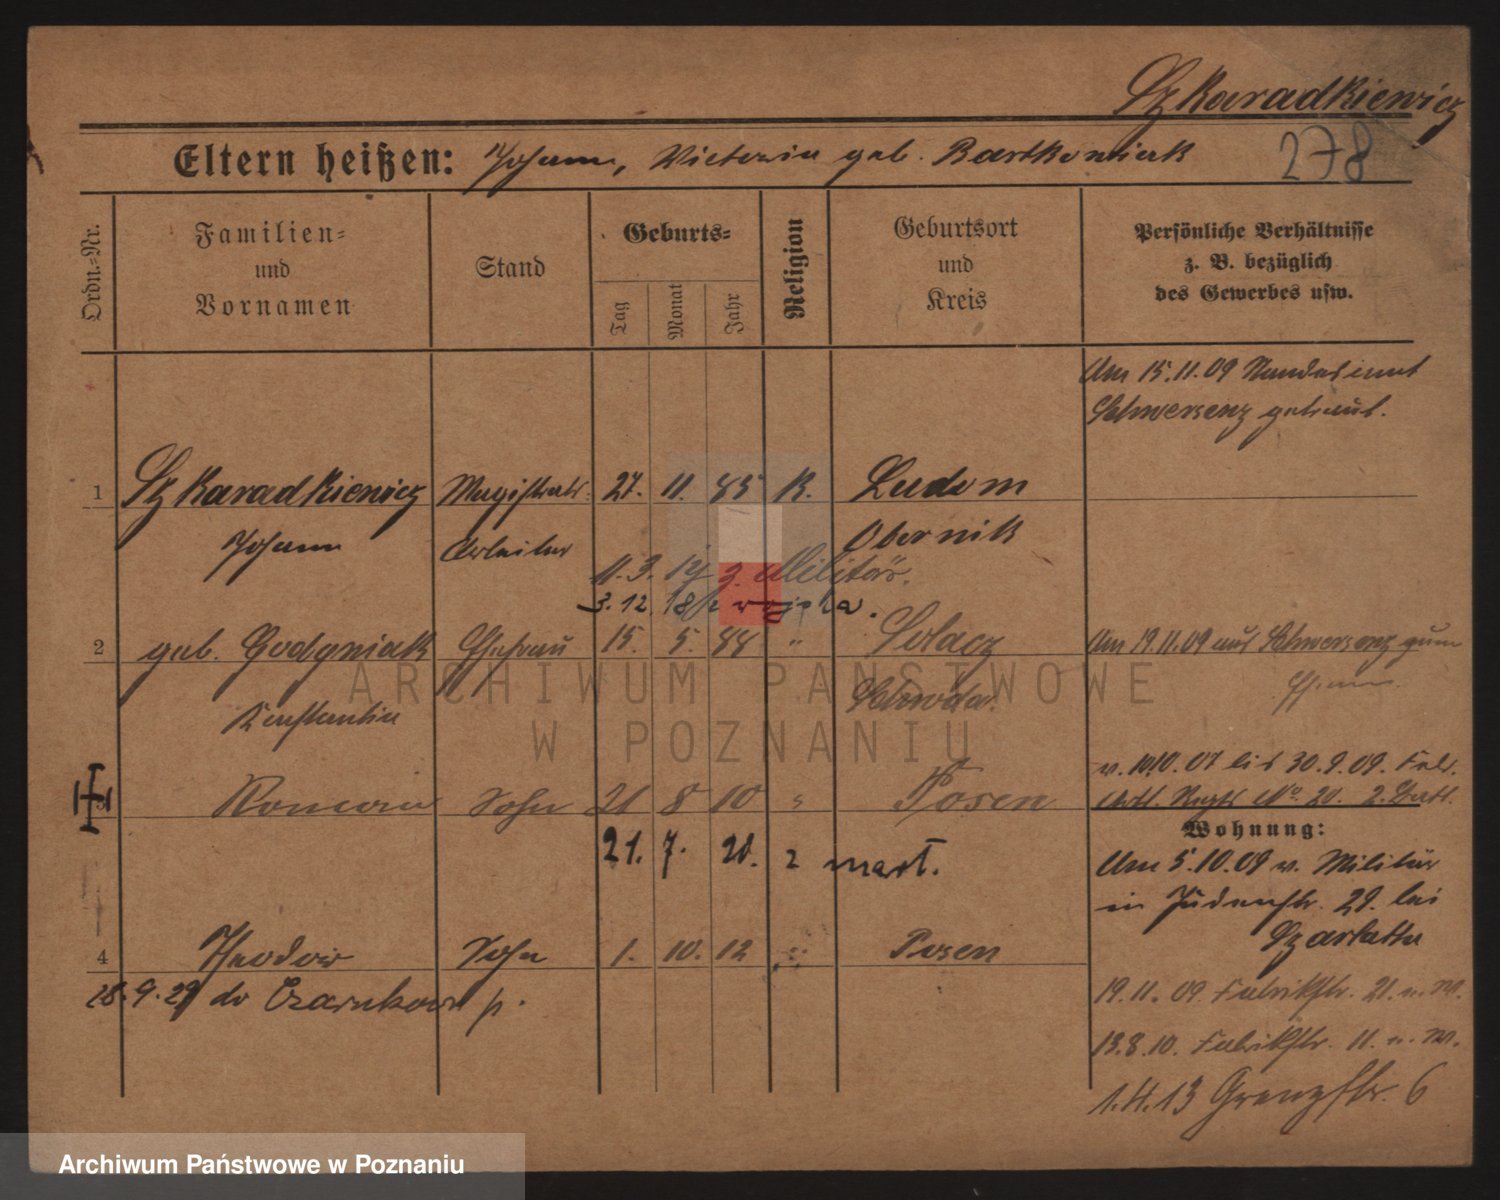 Szkaradkiewicz
Eltern heißen: Johann, Victoria geb. Bartkowiak
278
Ordn.=Nr.
Familien=
und
Vornamen
Stand
Geburts=
Tag
Monat
Jahr
Religion
Geburtsort
und
Kreis
Persönliche Verhältnisse
z. B. bezüglich
des Gewerbes usw.
Am 15.11.09 Standesamt
Schwersenz getraut.
1 Szkaradkiewicz Magistrats 27. 11. 85 K. Ludom
Johann Arbeiter Obernik
11.3. z. Militär.
3.12. 18 z wojska.
2 geb. Godyniak Ehefrau 15. 5. 88 " Solacz
Am 19.11.09 aus Schwersenz zum
Konstantia Schroda.
v. 10.10.07 bis 30.9.09.
3 Roman Sohn 21 8 10 " Posen
Regt No. 20. 2. Batt.
Wohnung:
21. 7. 28. mart.
Am 5.10.09 v. Militär
in Judenstr. 29. bei
Szarlatta
4 Theodor Sohn 1. 10. 12 " Posen
28.9.29 do Czarnkow p.
19.11.09 Fabrikstr. 21. n. M.
13.8.10. Fabrikstr. 11. n. M.
1.4.13 Grenzstr. 6
ARCHIWUM PAŃSTWOWE
W POZNANIU
Archiwum Państwowe w Poznaniu